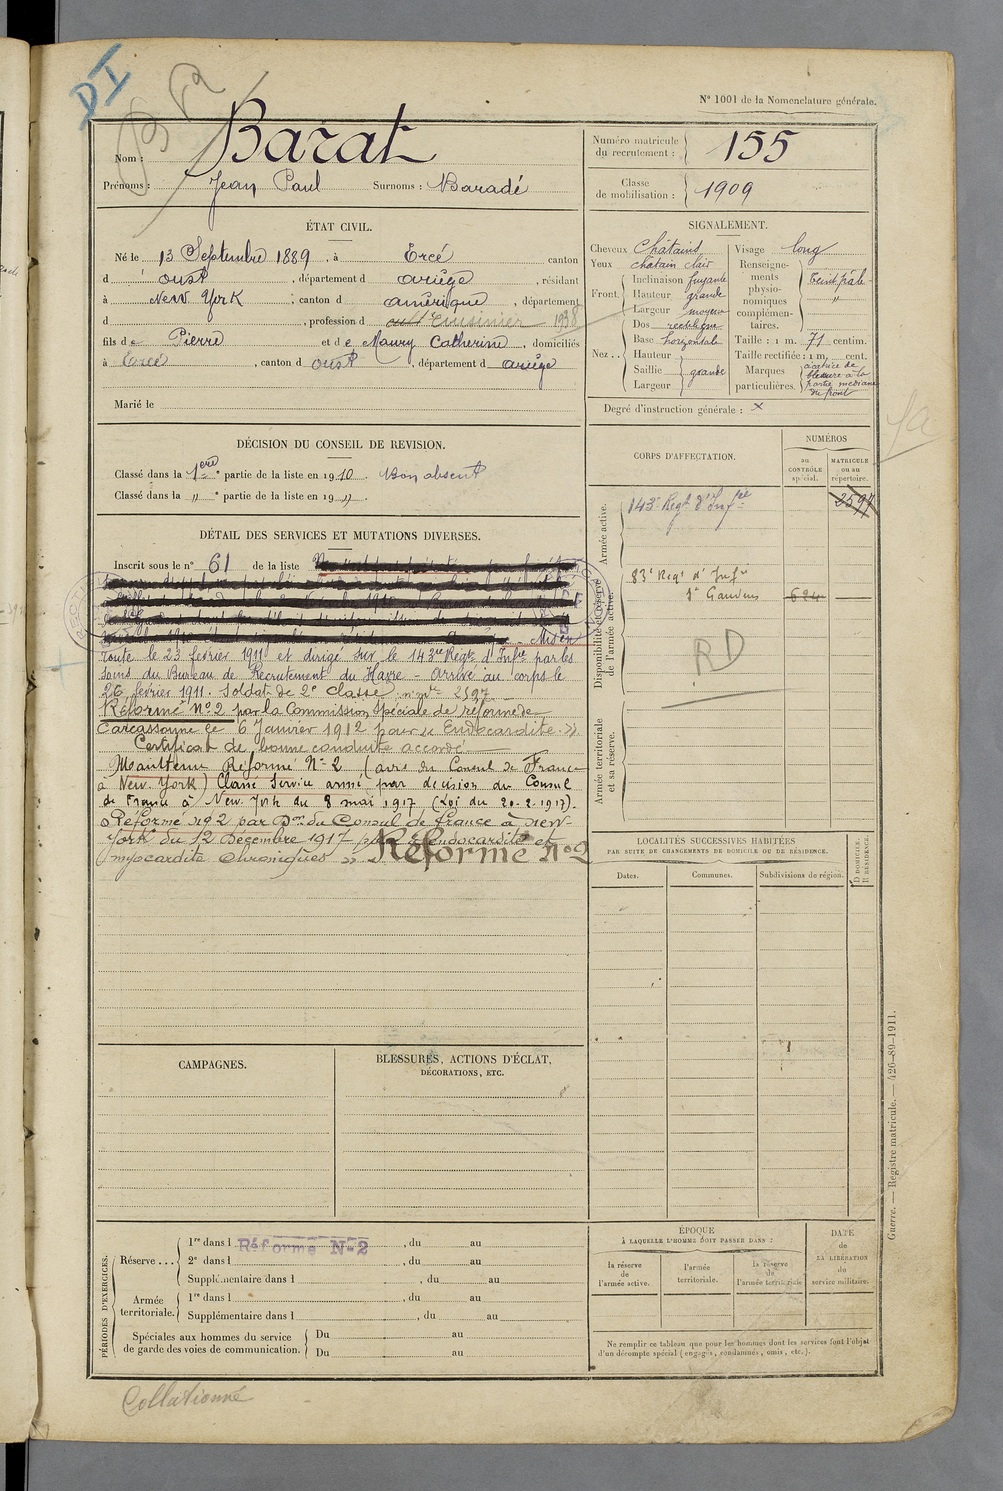 DI
N° 1001 de la Nomenclature générale.
Nom : Barat
Prénoms : Jean Paul Surnoms : Baradé
Numéro matricule du recrutement : 155
Classe de mobilisation : 1909
ÉTAT CIVIL.
Né le 13 Septembre 1889, à Ercé canton
d' oust, département d ariège, résidant
à New York, canton d amérique, département
d , profession d cuisinier 1938
fils de Pierre et de Maury Catherine, domiciliés
à Ercé, canton d oust, département d ariège
Marié le
SIGNALEMENT.
Cheveux Châtains
Yeux châtain clair
Front. Inclinaison fuyante
Hauteur grande
Largeur moyenne
Nez . . Dos rectiligne
Base horizontale
Hauteur
Saillie grande
Largeur
Visage long
Renseignements physionomiques complémentaires. Teint pâle
"
Taille : 1 m. 71 centim.
Taille rectifiée : 1 m. cent.
Marques particulières. cicatrice de
blessure à la
partie mediane
du front
Degré d'instruction générale : x
DÉCISION DU CONSEIL DE REVISION.
Classé dans la 1ere partie de la liste en 1910. Bon absent
Classé dans la " e partie de la liste en 19 " .
CORPS D'AFFECTATION.
NUMÉROS
au CONTRÔLE spécial.
MATRICULE ou au répertoire.
Armée active.
143e Regt d'Infie
2597
Disponibilité et réserve de l'armée active.
83e Regt d'Infie
à Gaudens 624
RD
Armée territoriale et sa réserve.
DÉTAIL DES SERVICES ET MUTATIONS DIVERSES.
Inscrit sous le n° 61 de la liste
Mis en
route le 23 février 1911 et dirigé sur le 143me Regt d'Infie par les
soins du Bureau de Recrutement du Havre - arrivé au corps le
26 février 1911. Soldat de 2e classe. n° mle 2597
Réformé n° 2 par la Commission spéciale de réforme de
Carcassonne le 6 Janvier 1912 pour « Endocardite »
Certificat de bonne conduite accordé
Maintenu Réformé N° 2 (avis du Consul de France
à New-York) Classé Service armé par décision du Consul
de France à New-York du 8 mai 1917 (Loi du 20-2-1917).
Réformé n° 2 par Don du Consul de france à New-
York du 12 Décembre 1917 pour « Endocardite et
myocardite chroniques »
Réformé n° 2
LOCALITÉS SUCCESSIVES HABITÉES
PAR SUITE DE CHANGEMENTS DE DOMICILE OU DE RÉSIDENCE.
Dates. Communes. Subdivisions de région. D DOMICILE. R RÉSIDENCE.
CAMPAGNES.
BLESSURES, ACTIONS D'ÉCLAT,
DÉCORATIONS, ETC.
PÉRIODES D'EXERCICES.
Réserve . . . 1re dans l Réformé N° 2 , du au
2e dans l , du au
Supplémentaire dans l , du au
Armée territoriale. 1re dans l , du au
Supplémentaire dans l , du au
Spéciales aux hommes du service de garde des voies de communication. Du au
Du au
ÉPOQUE
À LAQUELLE L'HOMME DOIT PASSER DANS :
la réserve de l'armée active.
l'armée territoriale.
la réserve de l'armée territoriale
DATE de LA LIBÉRATION du service militaire.
Ne remplir ce tableau que pour les hommes dont les services font l'objet
d'un décompte spécial (engagés, condamnés, omis, etc.).
Guerre. — Registre matricule. — 426-89-1911.
Collationné